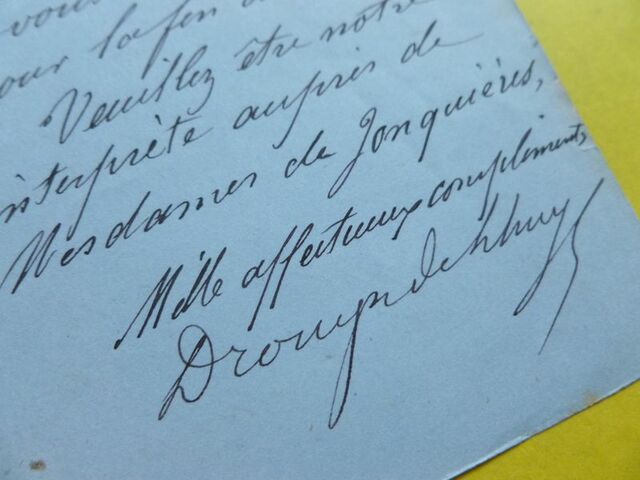 vous
pour la fin d
Veuillez être notre
interprète auprès de
Mesdames de Jonquières,
Mille affectueux compliments,
Drouyn de Lhuys